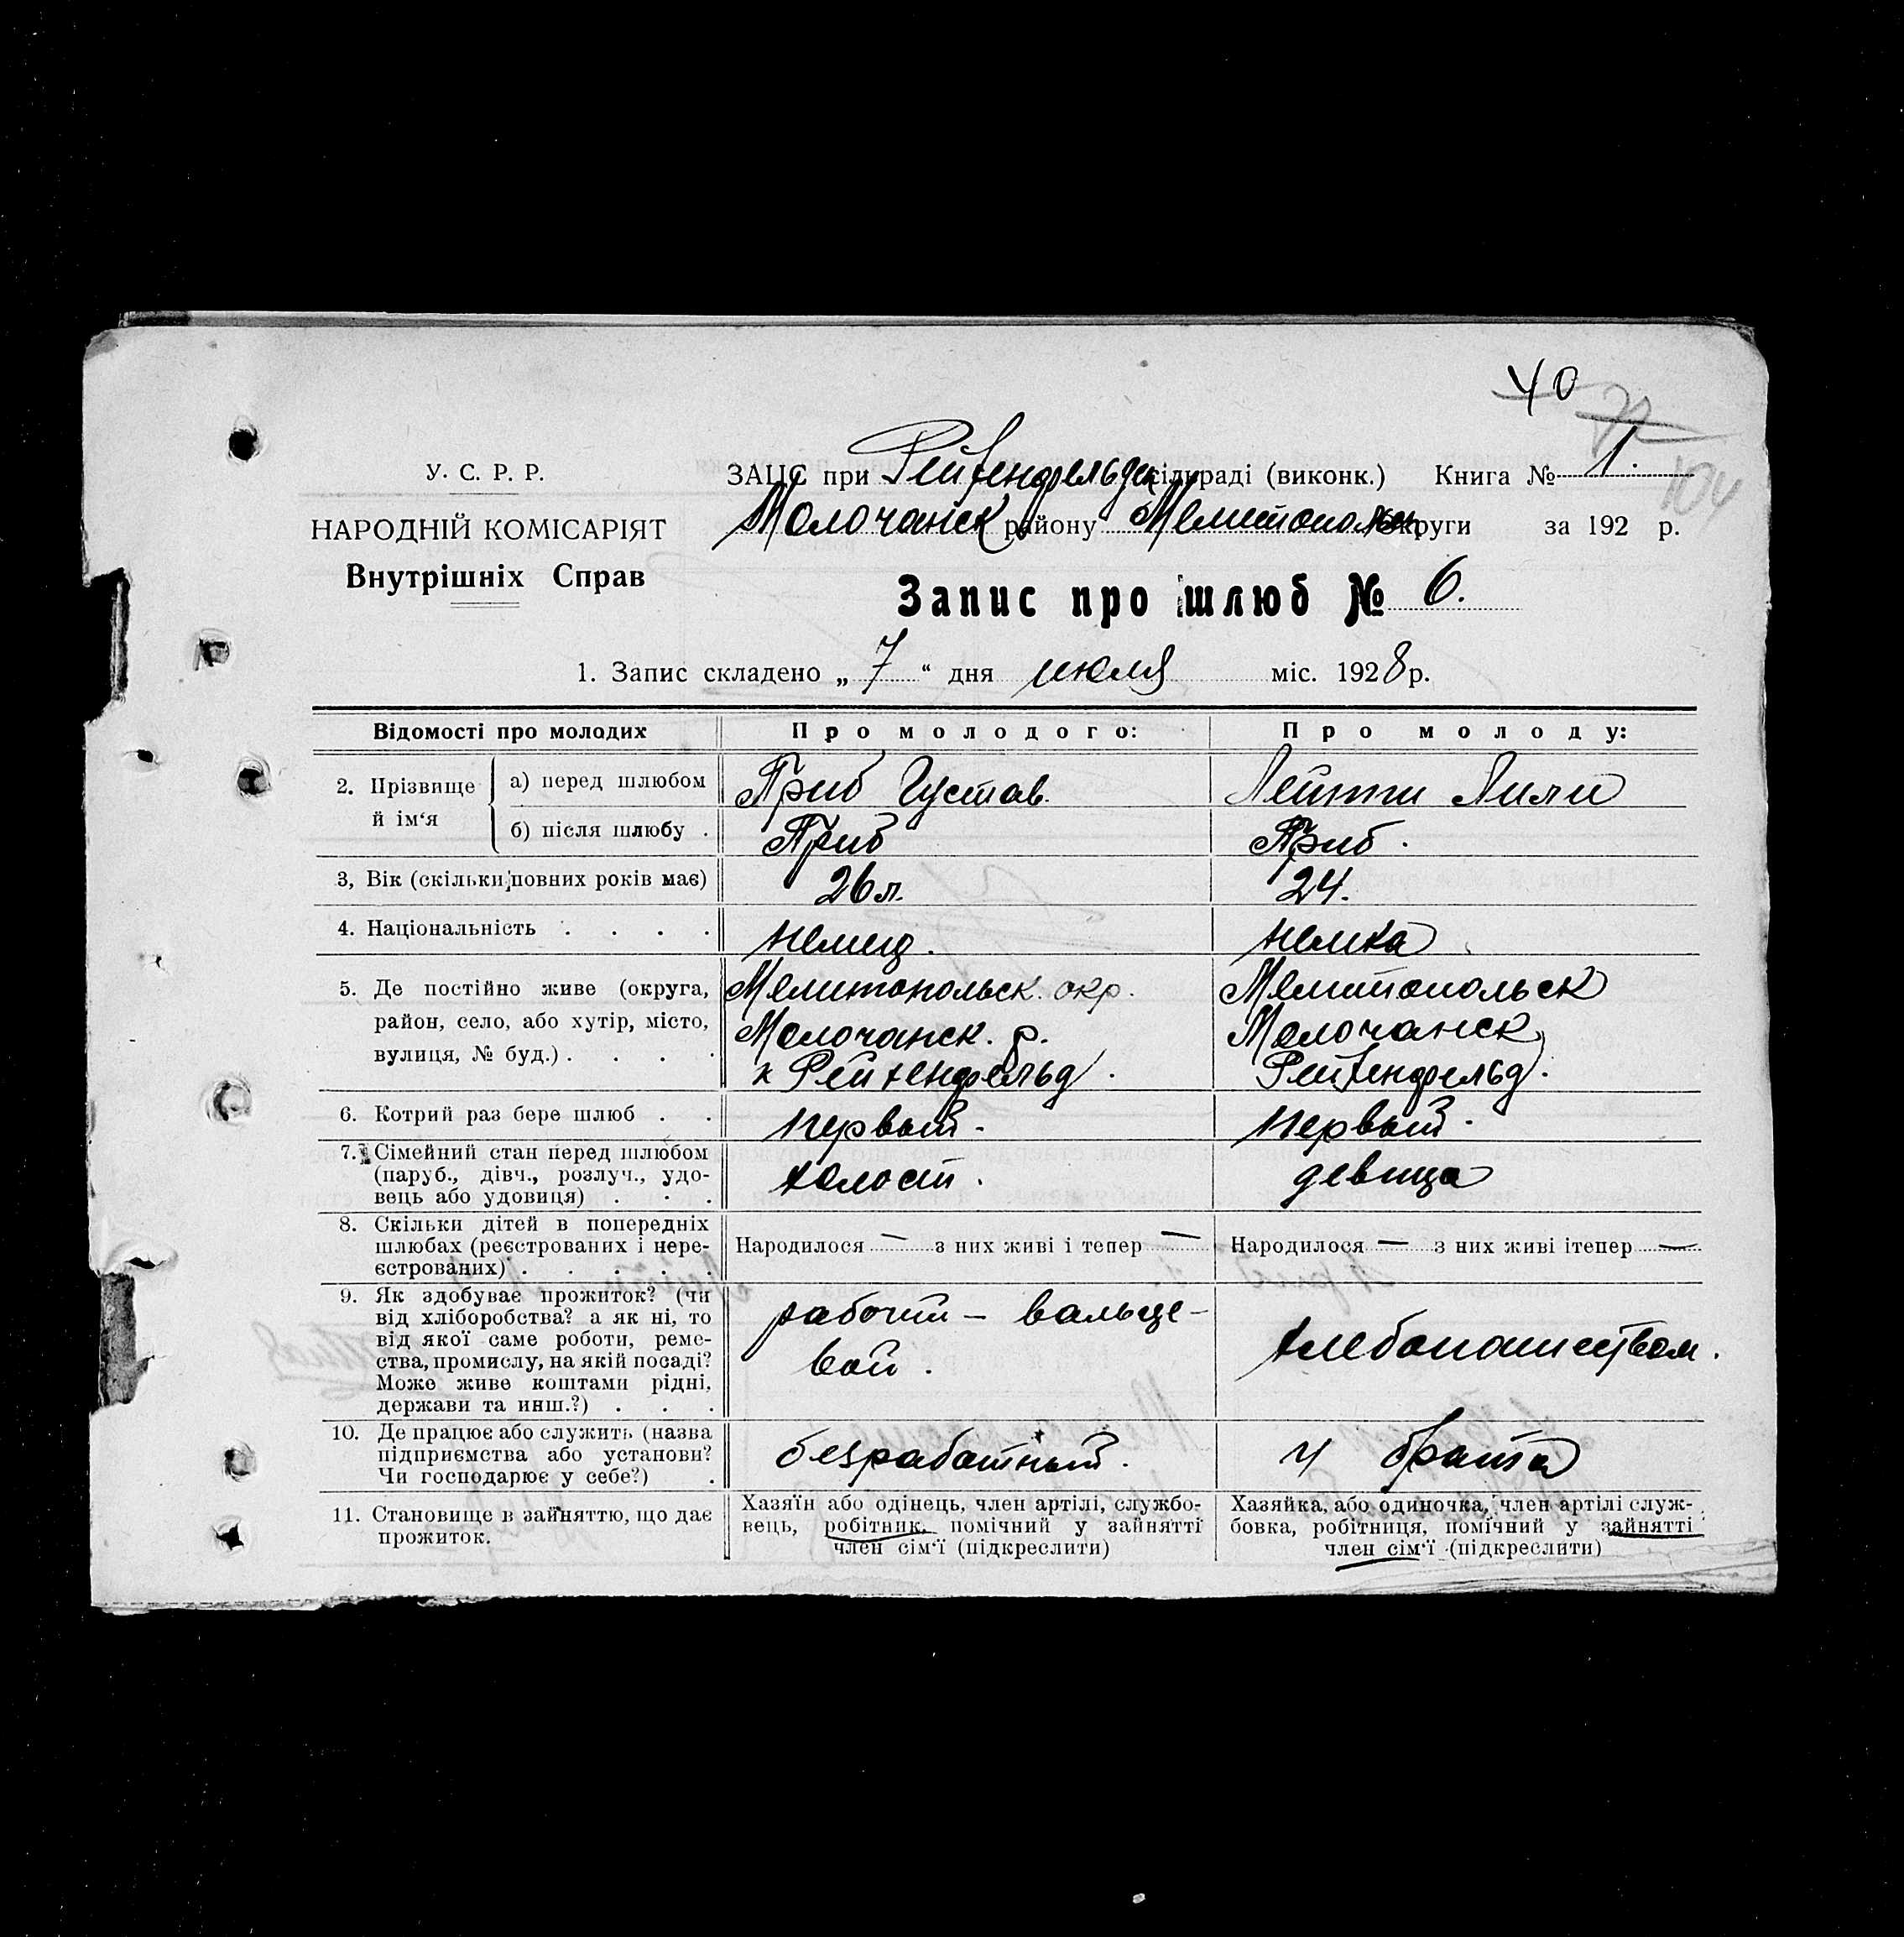 40
104
У. С. Р. Р.
НАРОДНІЙ КОМІСАРІЯТ
Внутрішніх Справ
ЗАЦС при Рейхенфельдск сільраді (виконк.) Книга № 1.
Молочанск району Мелитопольск округи за 192 р.
Запис про шлюб № 6.
1. Запис складено „ 7 “ дня июля міс. 1928 р.
Відомості про молодих
Про молодого:
Про молоду:
2. Прізвище й ім‘я
а) перед шлюбом
Гриб Густав.
Лейтти Лили
б) після шлюбу .
Гриб
Гриб .
3, Вік (скільки повних років має)
26 л.
24.
4. Національність . . . .
немец.
немка
5. Де постійно живе (округа,
район, село, або хутір, місто,
вулиця, № буд.) . . . .
Мелитопольск. окр.
Молочанск. р.
к Рейхенфельд.
Мелитопольск
Молочанск
Рейхенфельд.
6. Котрий раз бере шлюб . .
первый.
первый.
7. Сімейний стан перед шлюбом
(паруб., дівч., розлуч., удо-
вець або удовиця) . . .
холост.
девица
8. Скільки дітей в попередніх
шлюбах (реєстрованих і нере-
єстрованих) . . . . .
Народилося — з них живі і тепер —
Народилося — з них живі ітепер —
9. Як здобуває прожиток? (чи
від хліборобства? а як ні, то
від якої саме роботи, реме-
ства, промислу, на якій посаді?
Може живе коштами рідні,
держави та инш.?) . . .
рабочий – вальце-
вой.
хлебопашеством.
10. Де працює або служить (назва
підприємства або установи?
Чи господарює у себе?) .
безработный.
у брата
11. Становище в зайняттю, що дає
прожиток.
Хазяїн або одінець, член артілі, службо-
вець, робітник, помічний у зайнятті
член сім‘ї (підкреслити)
Хазяйка, або одиночка, член артілі служ-
бовка, робітниця, помічний у зайнятті
член сім‘ї (підкреслити)